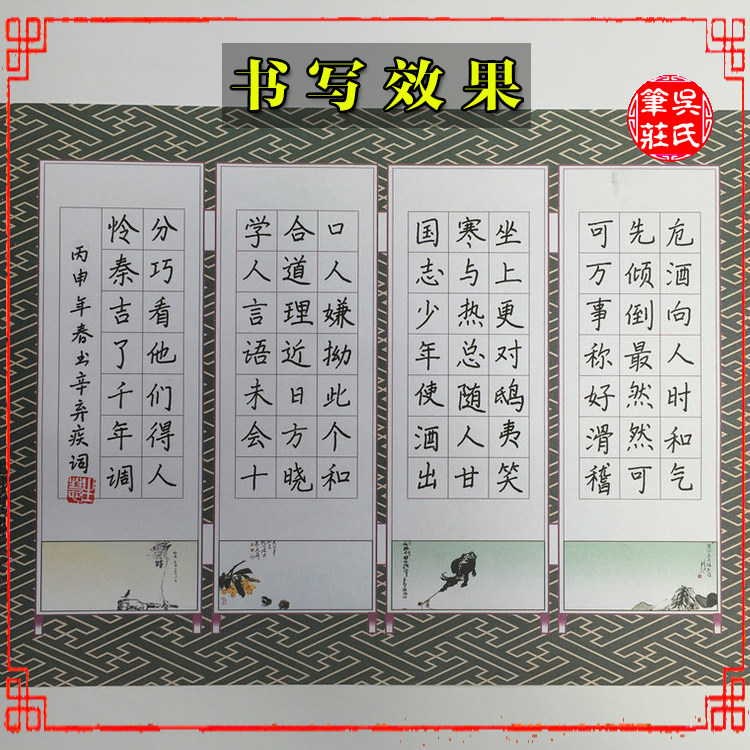 书写效果
吳氏
筆莊
危酒向人时和气
先倾倒最然然可
可万事称好滑稽
坐上更对鸱夷笑
寒与热总随人甘
国志少年使酒出
口人嫌拗此个和
合道理近日方晓
学人言语未会十
分巧看他们得人
怜秦吉了千年调
丙申年春书辛弃疾词